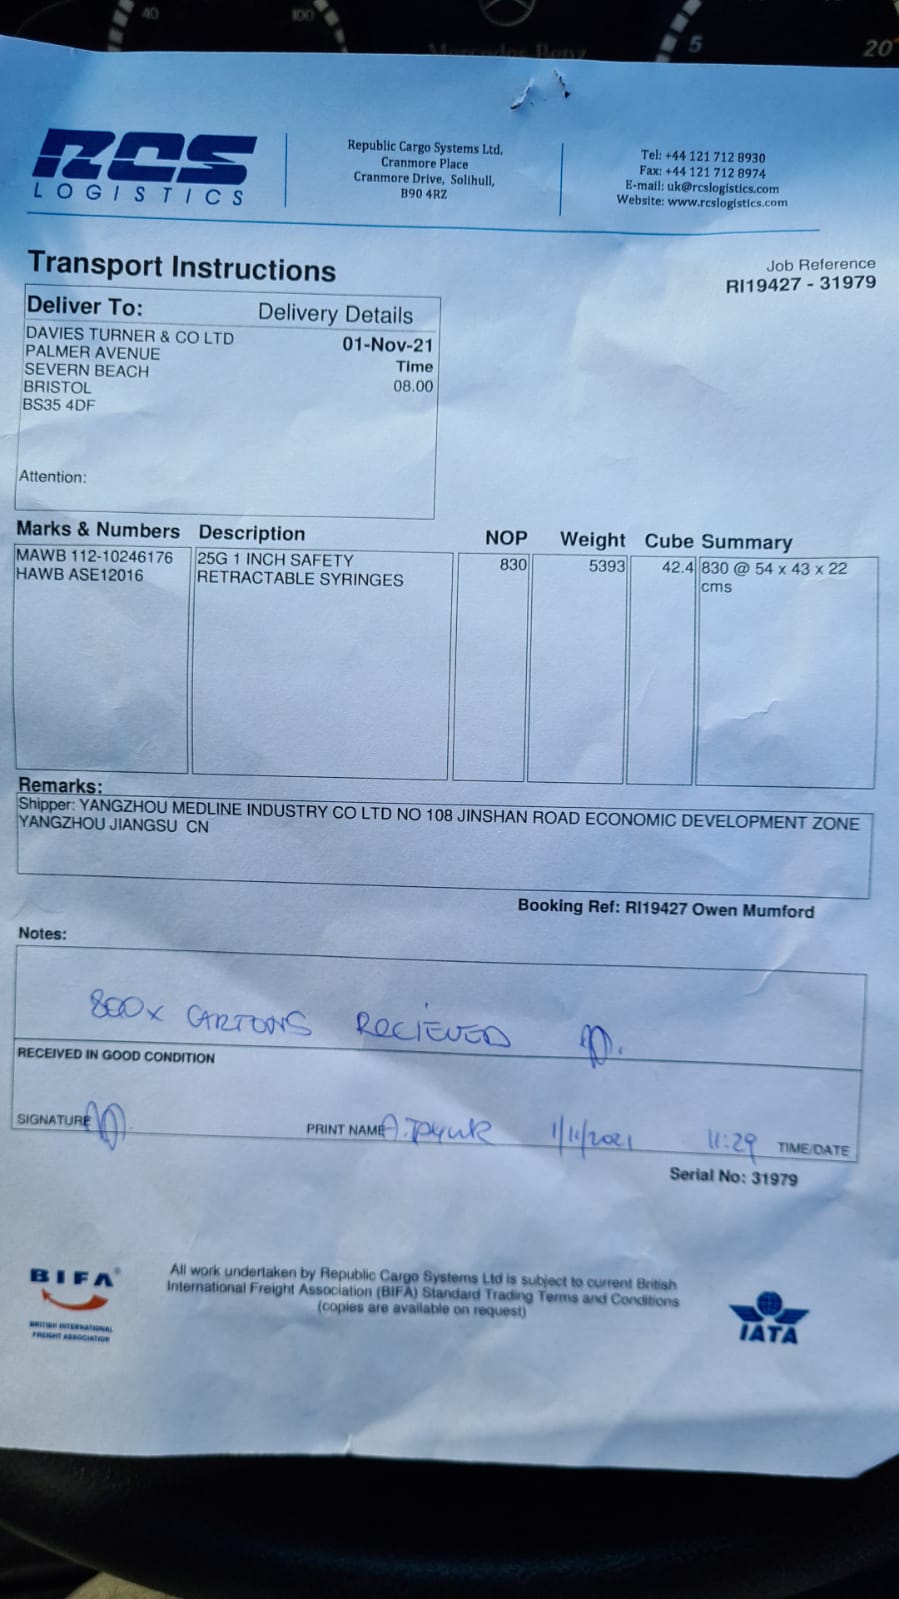 40
100
Mercedes-Benz
5
20
RCS
LOGISTICS
Republic Cargo Systems Ltd.
Cranmore Place
Cranmore Drive, Solihull,
B90 4RZ
Tel: +44 121 712 8930
Fax: +44 121 712 8974
E-mail: uk@rcslogistics.com
Website: www.rcslogistics.com
Transport Instructions
Job Reference
RI19427 - 31979
Deliver To: Delivery Details
DAVIES TURNER & CO LTD
PALMER AVENUE
SEVERN BEACH
BRISTOL
BS35 4DF
01-Nov-21
Time
08.00
Attention:
Marks & Numbers Description NOP Weight Cube Summary
MAWB 112-10246176 25G 1 INCH SAFETY 830 5393 42.4 830 @ 54 x 43 x 22
HAWB ASE12016 RETRACTABLE SYRINGES cms
Remarks:
Shipper: YANGZHOU MEDLINE INDUSTRY CO LTD NO 108 JINSHAN ROAD ECONOMIC DEVELOPMENT ZONE
YANGZHOU JIANGSU CN
Booking Ref: RI19427 Owen Mumford
Notes:
800x CARTONS RECIEVED
RECEIVED IN GOOD CONDITION
SIGNATURE PRINT NAME 1/11/2021 11:29 TIME/DATE
Serial No: 31979
BIFA
BRITISH INTERNATIONAL
FREIGHT ASSOCIATION
All work undertaken by Republic Cargo Systems Ltd is subject to current British
International Freight Association (BIFA) Standard Trading Terms and Conditions
(copies are available on request)
IATA